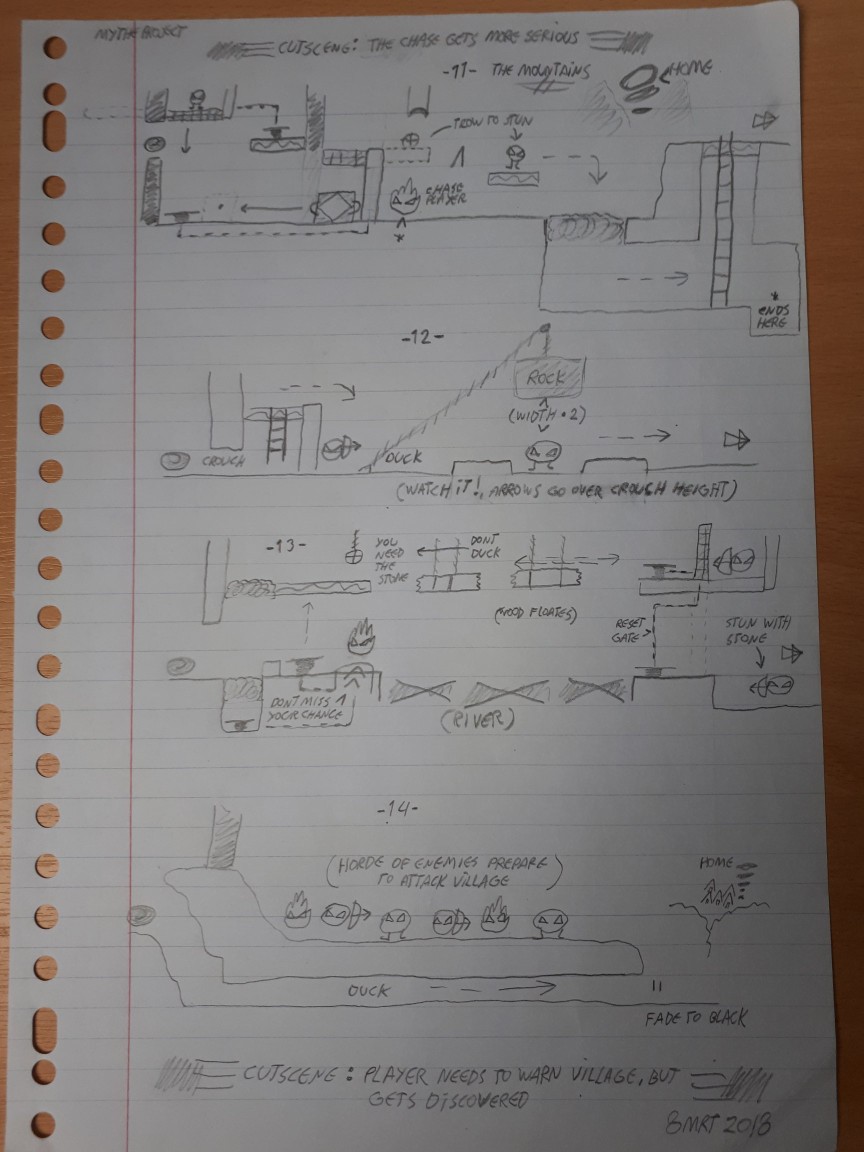 MYTHE PROJECT
CUTSCENE: THE CHASE GETS MORE SERIOUS
-11- THE MOUNTAINS
HOME
TROW TO STUN
CHASE
PLAYER
*
*
ENDS
HERE
-12-
ROCK
(WIDTH • 2)
CROUCH
DUCK
(WATCH IT!, ARROWS GO OVER CROUCH HEIGHT)
-13-
YOU
NEED
THE
STONE
DONT
DUCK
(WOOD FLOATES)
RESET
GATE
STUN WITH
STONE
DONT MISS
YOUR CHANCE
(RIVER)
-14-
(HORDE OF ENEMIES PREPARE
TO ATTACK VILLAGE)
HOME
DUCK
FADE TO BLACK
CUTSCENE: PLAYER NEEDS TO WARN VILLAGE, BUT
GETS DISCOVERED
8MRT 2018